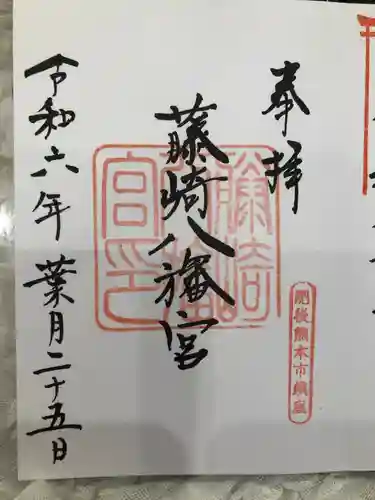 奉拝
藤崎八旛宮
令和六年 葉月二十五日
肥後熊本市鎮座